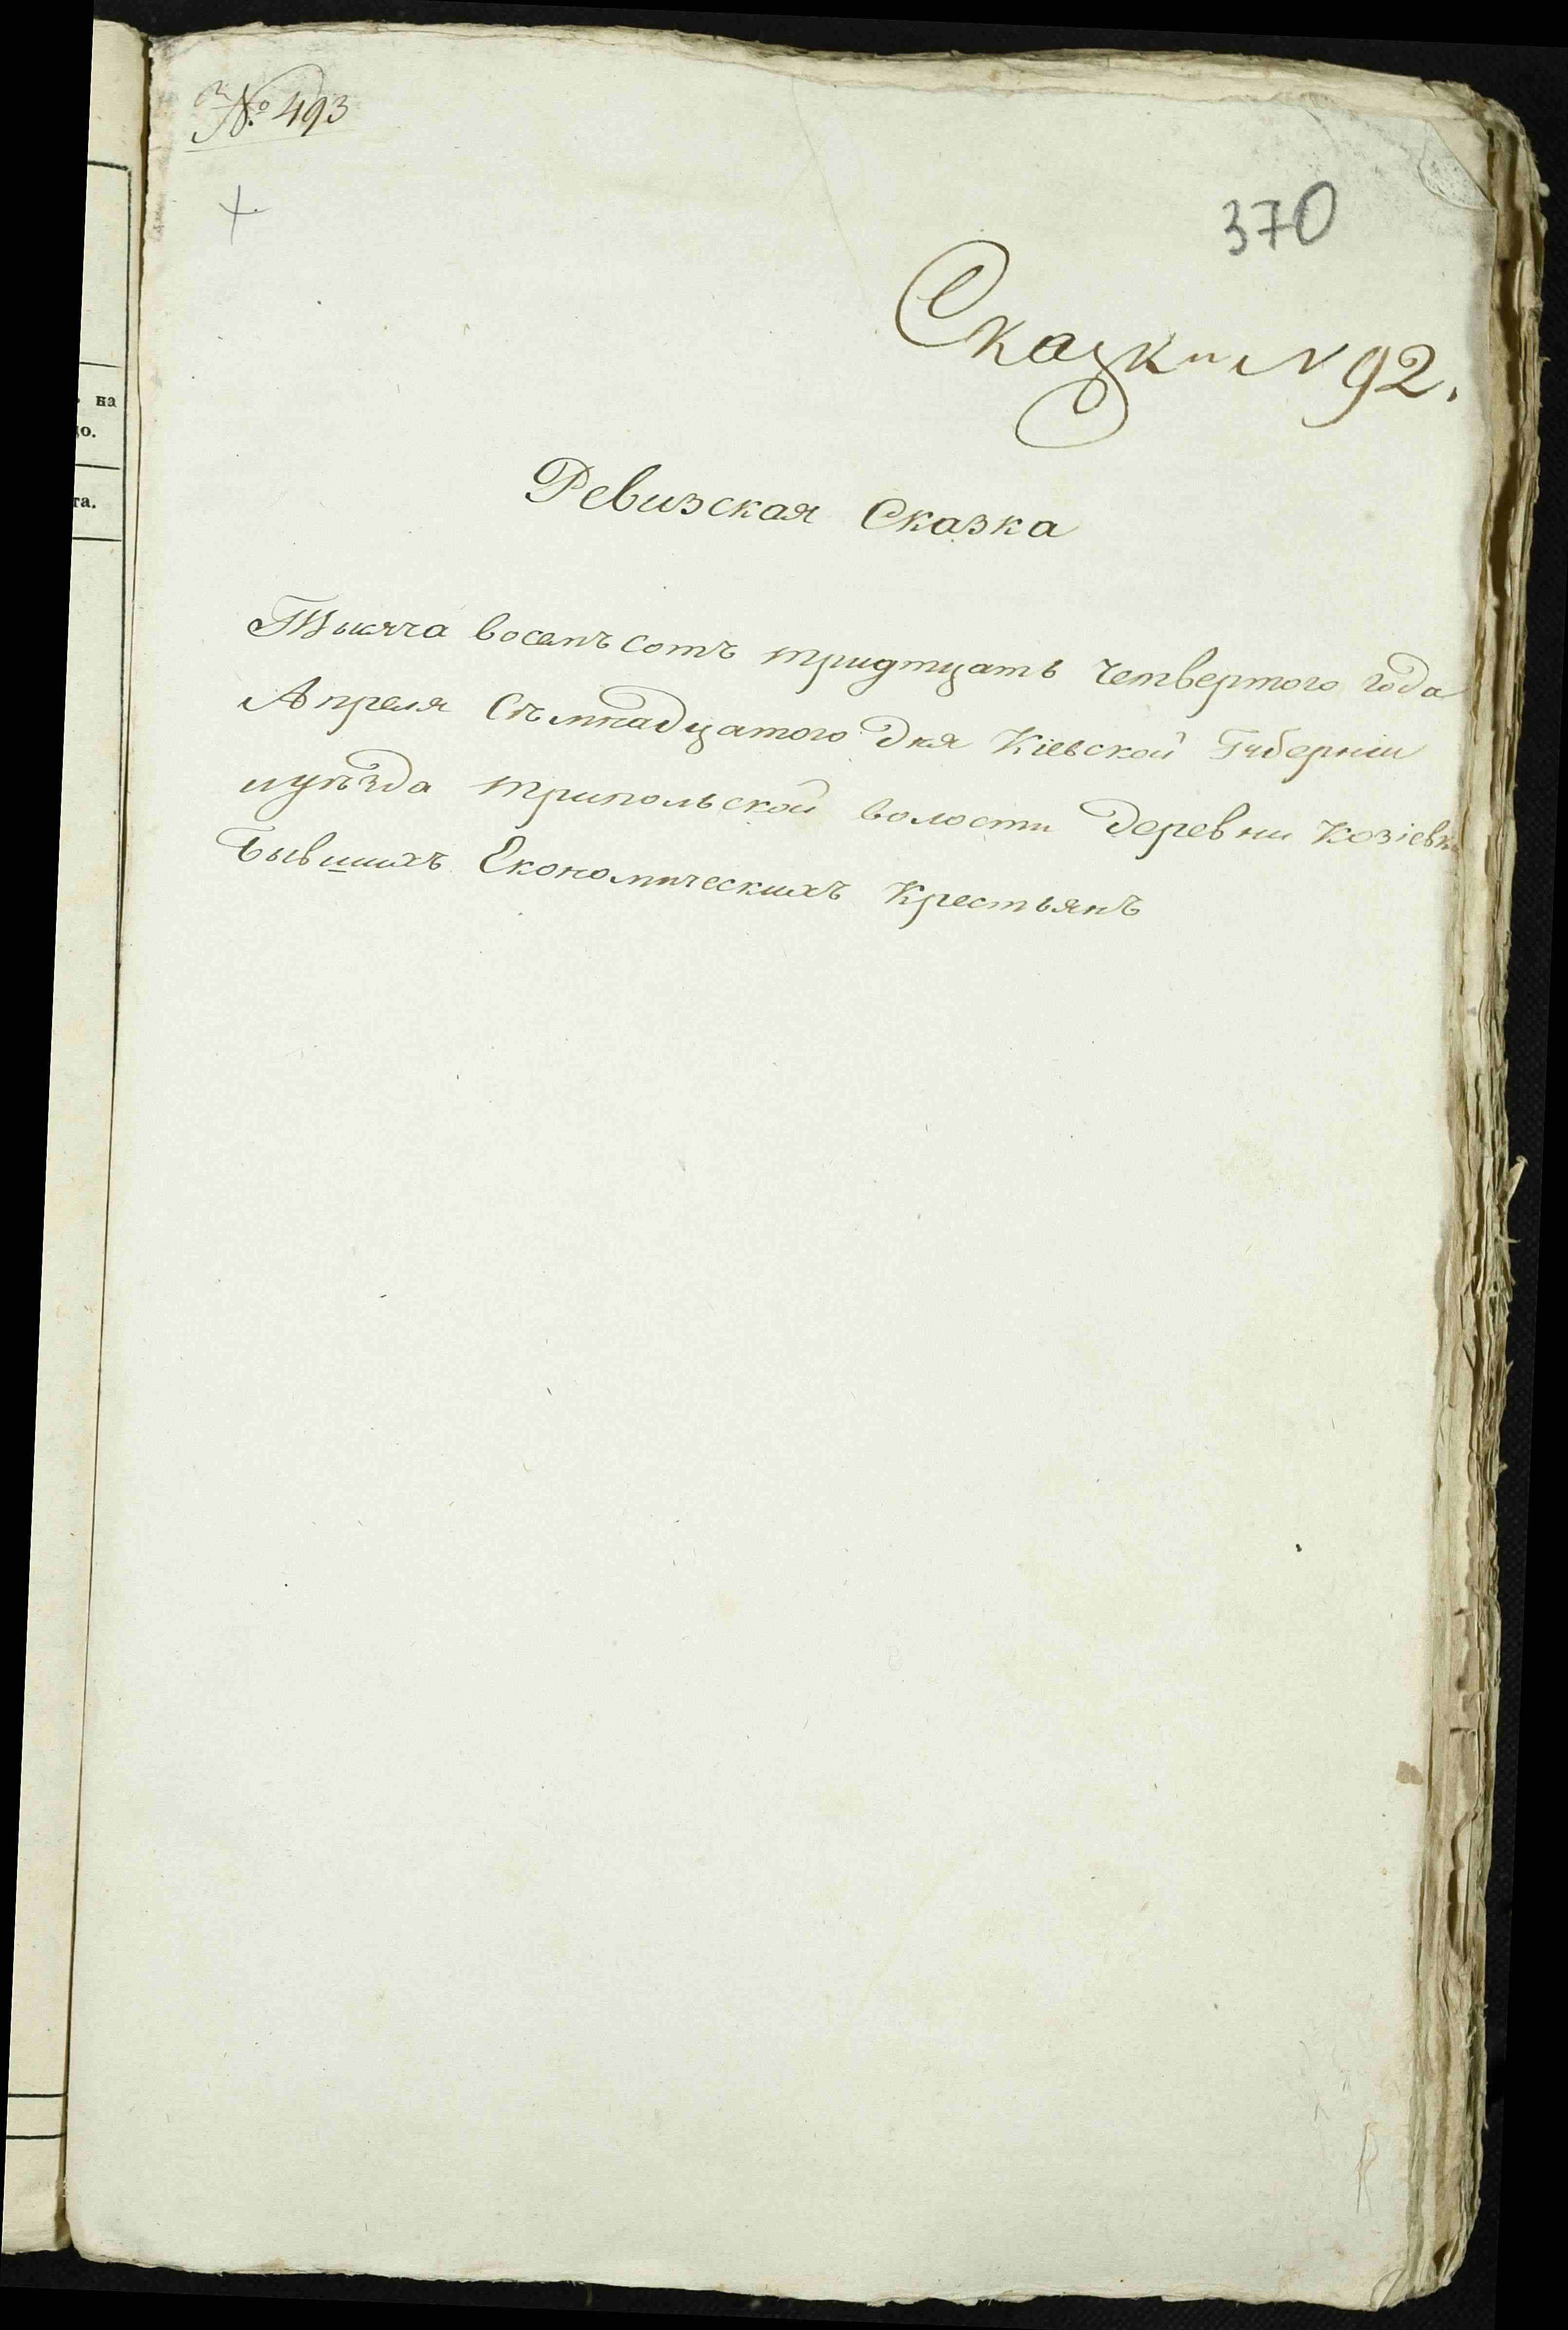 № 493
370
Сказки N 92.
Ревизская Сказка
Тысяча восемъ сотъ тридтцать четвертого года
Апреля Семнадцатого дня Кіевской Губерніи
иуѣзда трипольской волости деревни Козіевки
Бывшихъ Економическихъ Крестьянъ
на
го.
та.